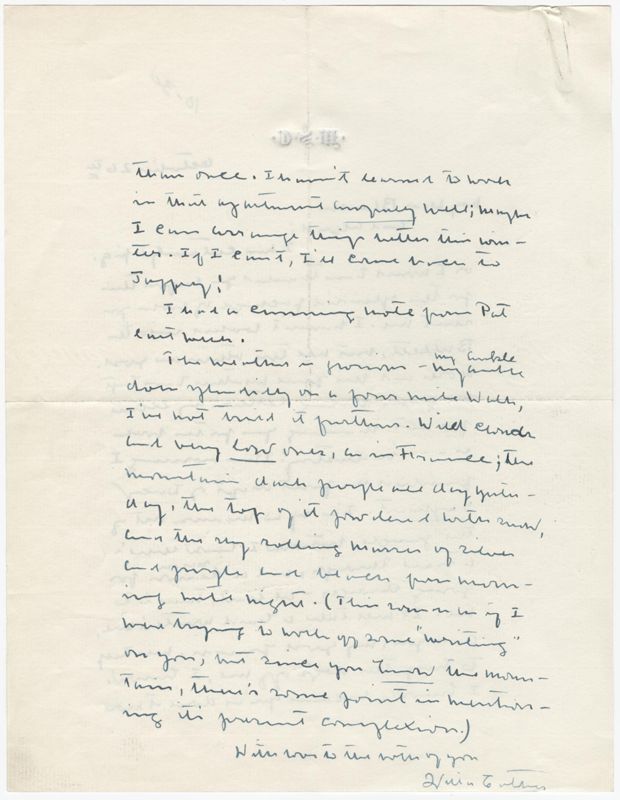 than once. I haven't learned to work
in that apartment awfully well; maybe
I can arrange things better this win-
ter. If I can't, I'll come back to
Jaffrey!
I had a cunning note from Pat
last week.
The weather is glorious - my ankle
my ankle
does splendidly on a four mile walk,
I've not tried it further. Wild clouds
and very low ones, as in France; the
mountain dark purple all day yester-
day, the top of it powdered with snow,
and the sky rolling masses of silver
and purple and black from morn-
ing until night. (This sounds as if I
were trying to work off some "writing"
on you, but since you know the moun-
tain, there's some point in mention-
ing its present complexion.)
With love to the both of you
Willa Cather